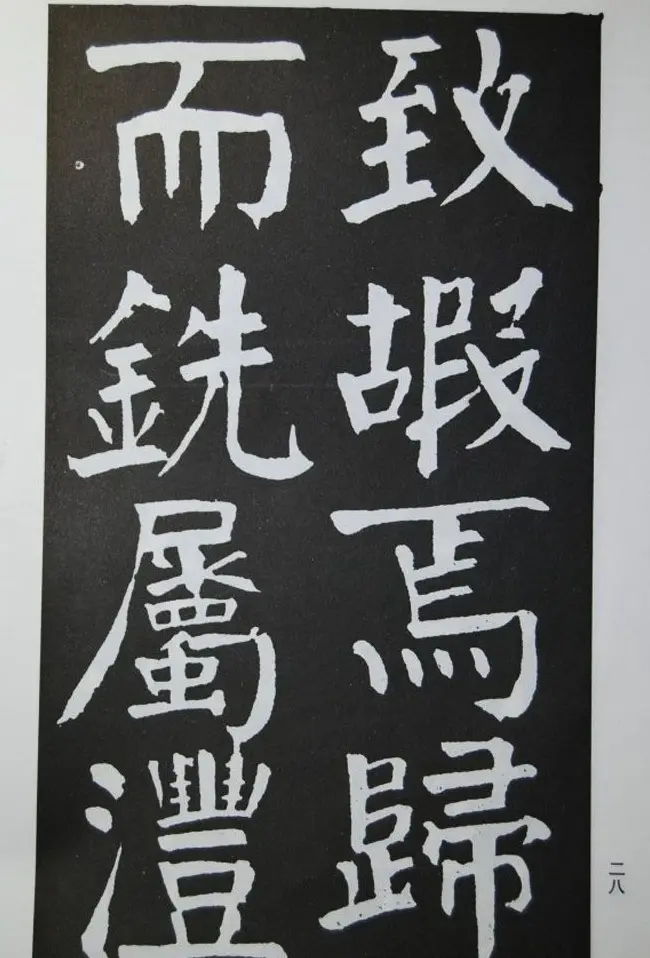 致嘏焉歸
而銑屬澧
二八